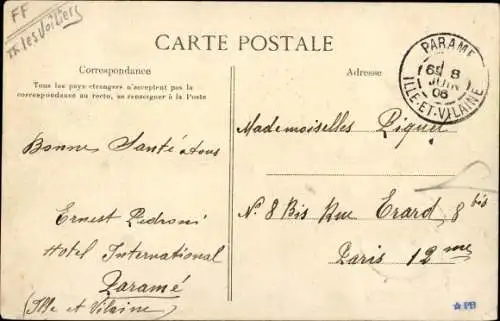 FF
CARTE POSTALE
Correspondance
Tous les pays étrangers n'acceptent pas la
correspondance au recto, se renseigner à la Poste
Bonne Santé a tous
Ernest Pedroni
Hotel International
Paramé
(Ille et Vilaine)
Adresse
PARAMÉ
8
JUIN
08
ILLE-ET-VILAINE
Mademoiselles Piquet
N. 8 Bis Rue Erard, 8 bis
Paris 12 me
PB